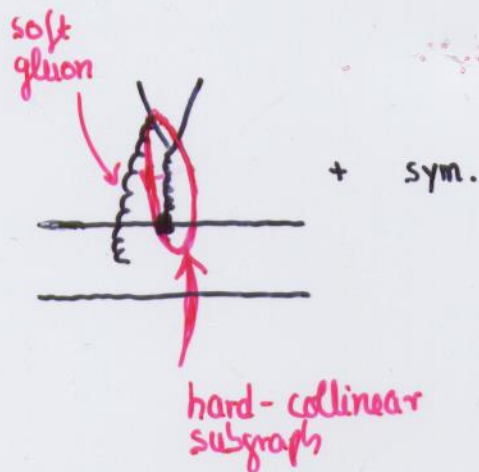 soft
gluon
+ sym.
hard-collinear
subgraph